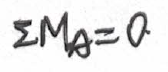 ΣM_A=0